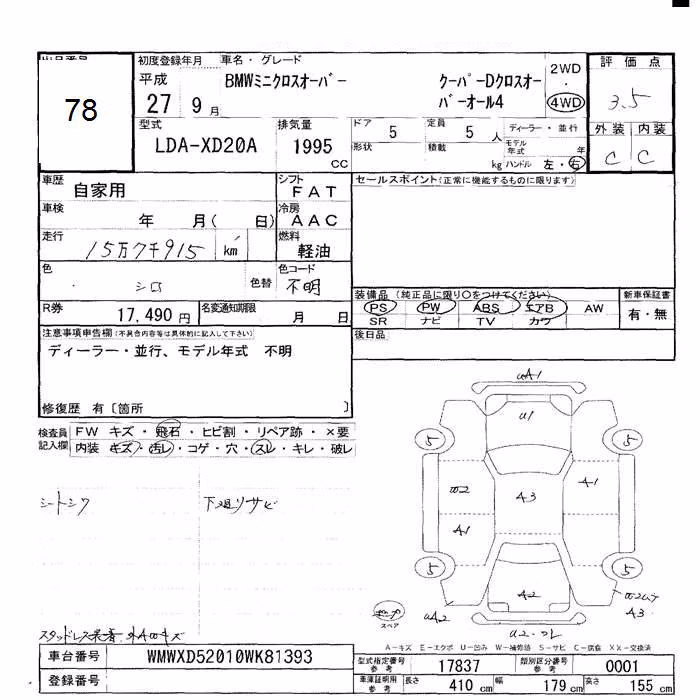 78
初度登録年月 車名・グレード
平成 BMWミニクロスオーバー クーパーDクロスオー 2WD 評価点
27 9月 バーオール4 4WD 3.5
型式 排気量 ドア 5 定員 5人 ディーラー・並行 外装 内装
LDA-XD20A 1995 cc 形状 積載 kg モデル年式 年 ハンドル 左・右 C C
車歴 自家用 シフト FAT セールスポイント(正常に機能するものに限ります)
車検 年 月( 日) 冷房 AAC
走行 15万7千915 km 燃料 軽油
色 シロ 色替 色コード 不明
装備品(純正品に限り○をつけてください) 新車保証書
R券 17,490円 名変通知期限 月 日 PS PW ABS エアB AW 有・無
SR ナビ TV カワ
注意事項申告欄(不具合内容等は具体的に記入して下さい) 後日品
ディーラー・並行、モデル年式 不明
修復歴 有〔箇所 〕
検査員記入欄 FW キズ・飛石・ヒビ割・リペア跡・×要
内装 キズ・汚レ・コゲ・穴・スレ・キレ・破レ
シートシワ 下廻リサビ
uA1
U1
5 5
A1
A3
A1
5 5
A2
uA2
A3
スペア
スタッドレス装着
A-キズ E-エクボ U-凹み W-補修跡 S-サビ C-腐食 XX-交換済
車台番号 WMWXD52010WK81393 型式指定番号参考 17837 類別区分番号参考 0001
登録番号 車庫証明用参考 長さ 410cm 幅 179cm 高さ 155cm